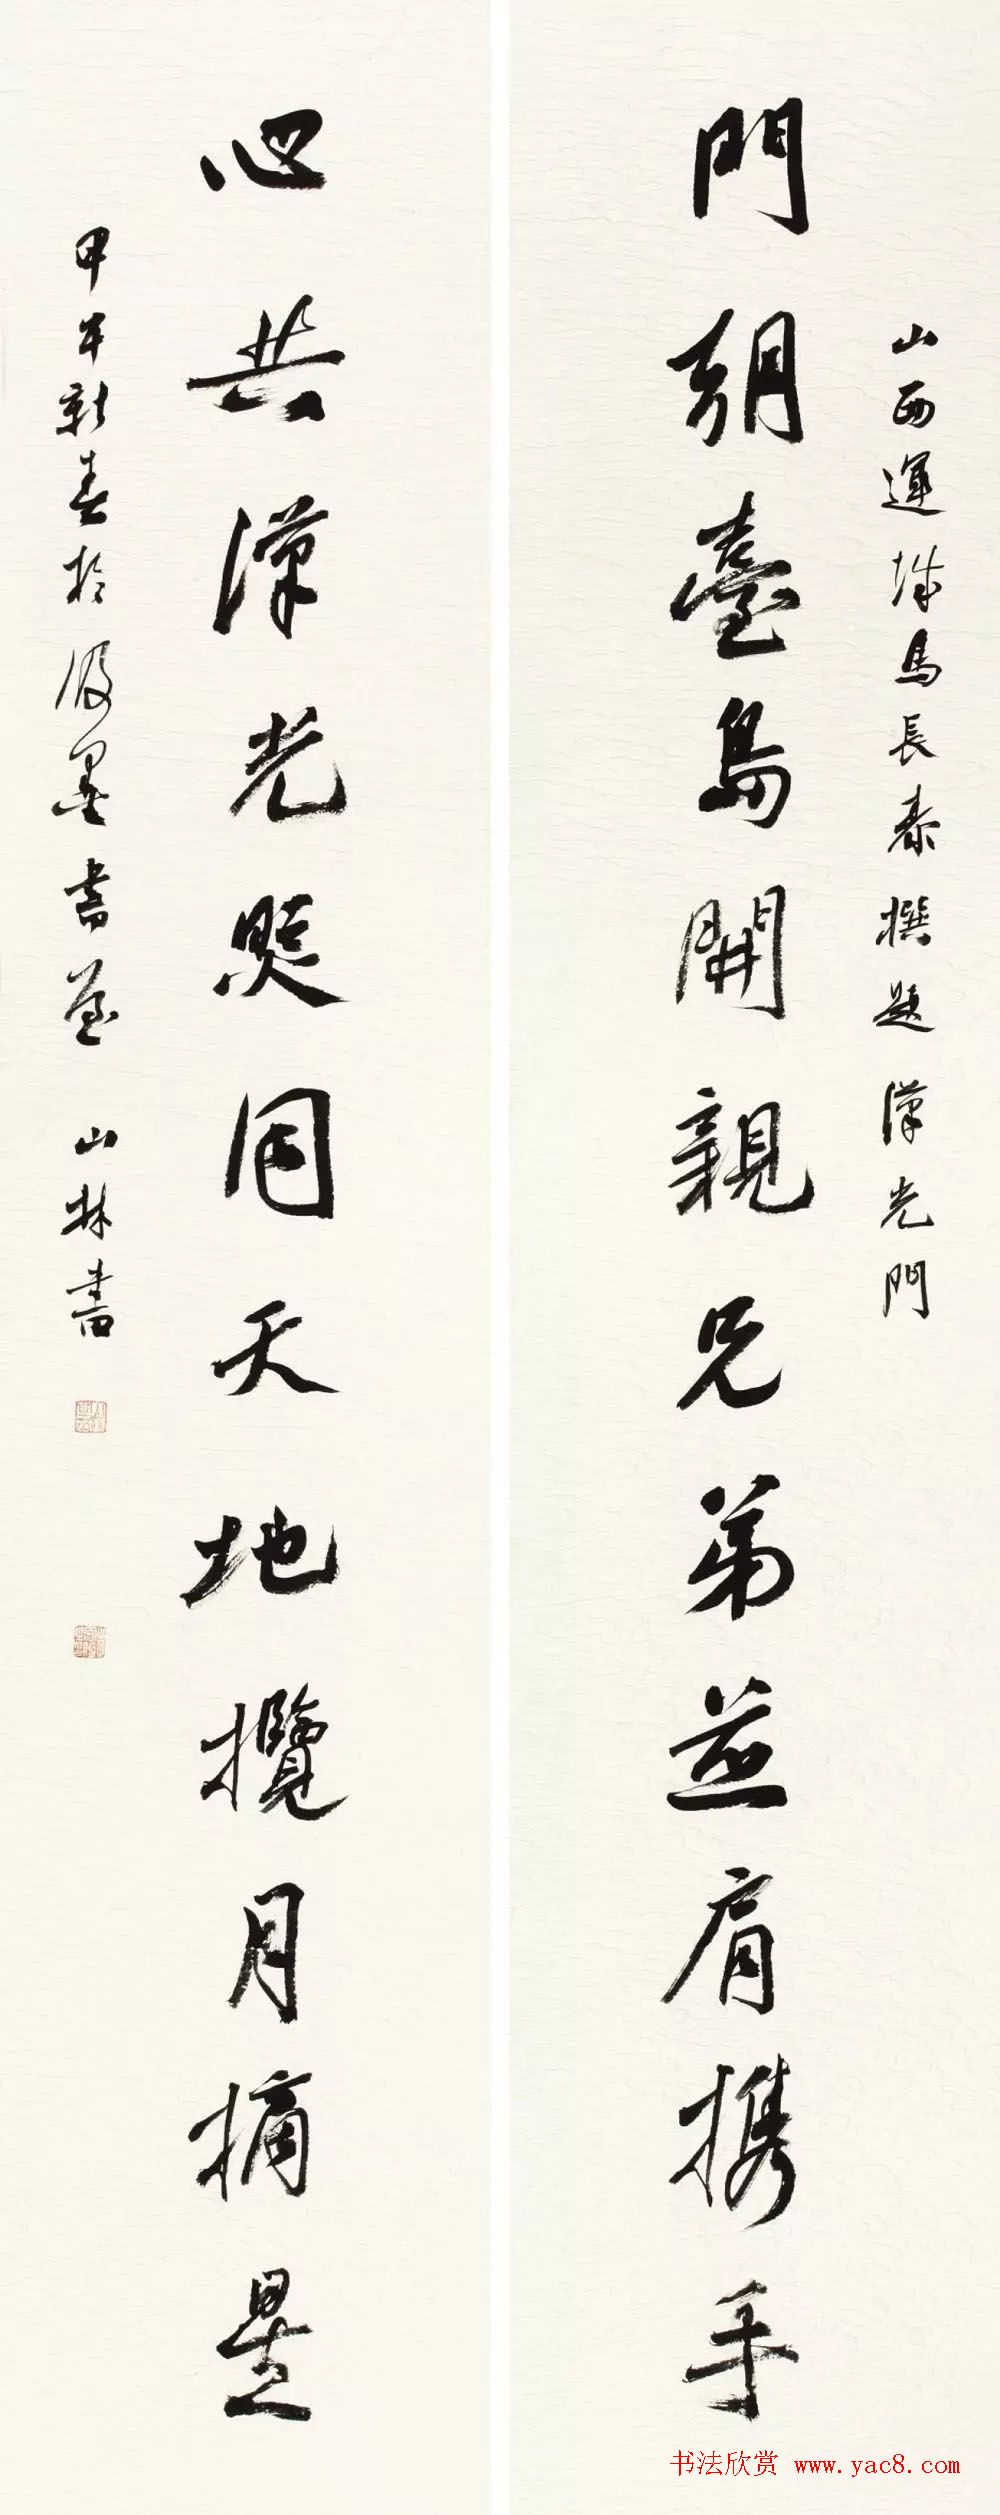 山西運城馬長泰撰題漢光門
門朝臺島開親兄弟並肩携手
心共漢光照同天地攬月摘星
甲午新春於墨書 山林書
书法欣赏 www.yac8.com